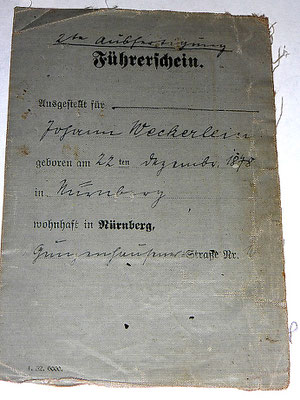 2te Ausfertigung
Führerschein.
Ausgestellt für
Johann Weckerlein
geboren am 22 ten Dezembr. 1898
in Nürnberg
wohnhaft in Nürnberg,
Gunzenhausener-Straße Nr.